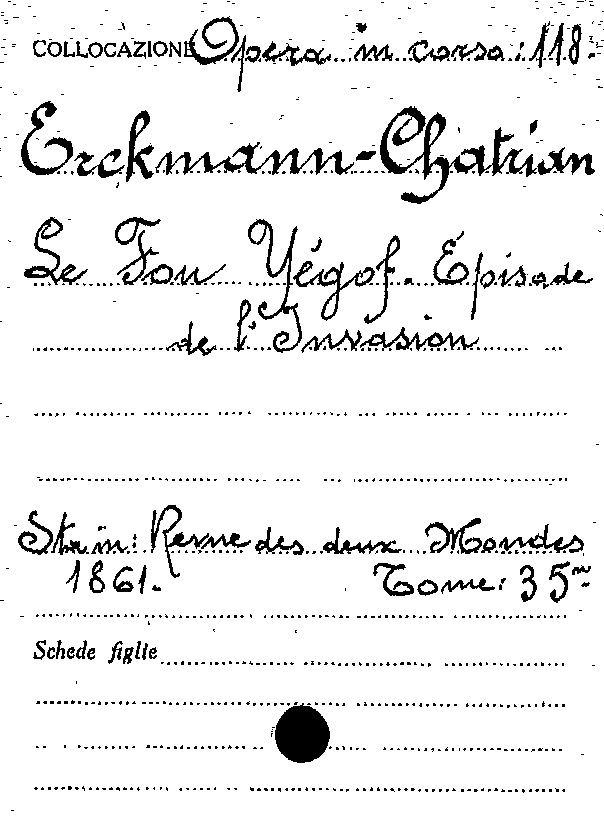 COLLOCAZIONE Opera in corso: 118.
Erckmann-Chatrian
Le Fou Yégof. Épisode
de l'Invasion
Sta in: Revue des deux Mondes
1861. Tome: 35me
Schede figlie